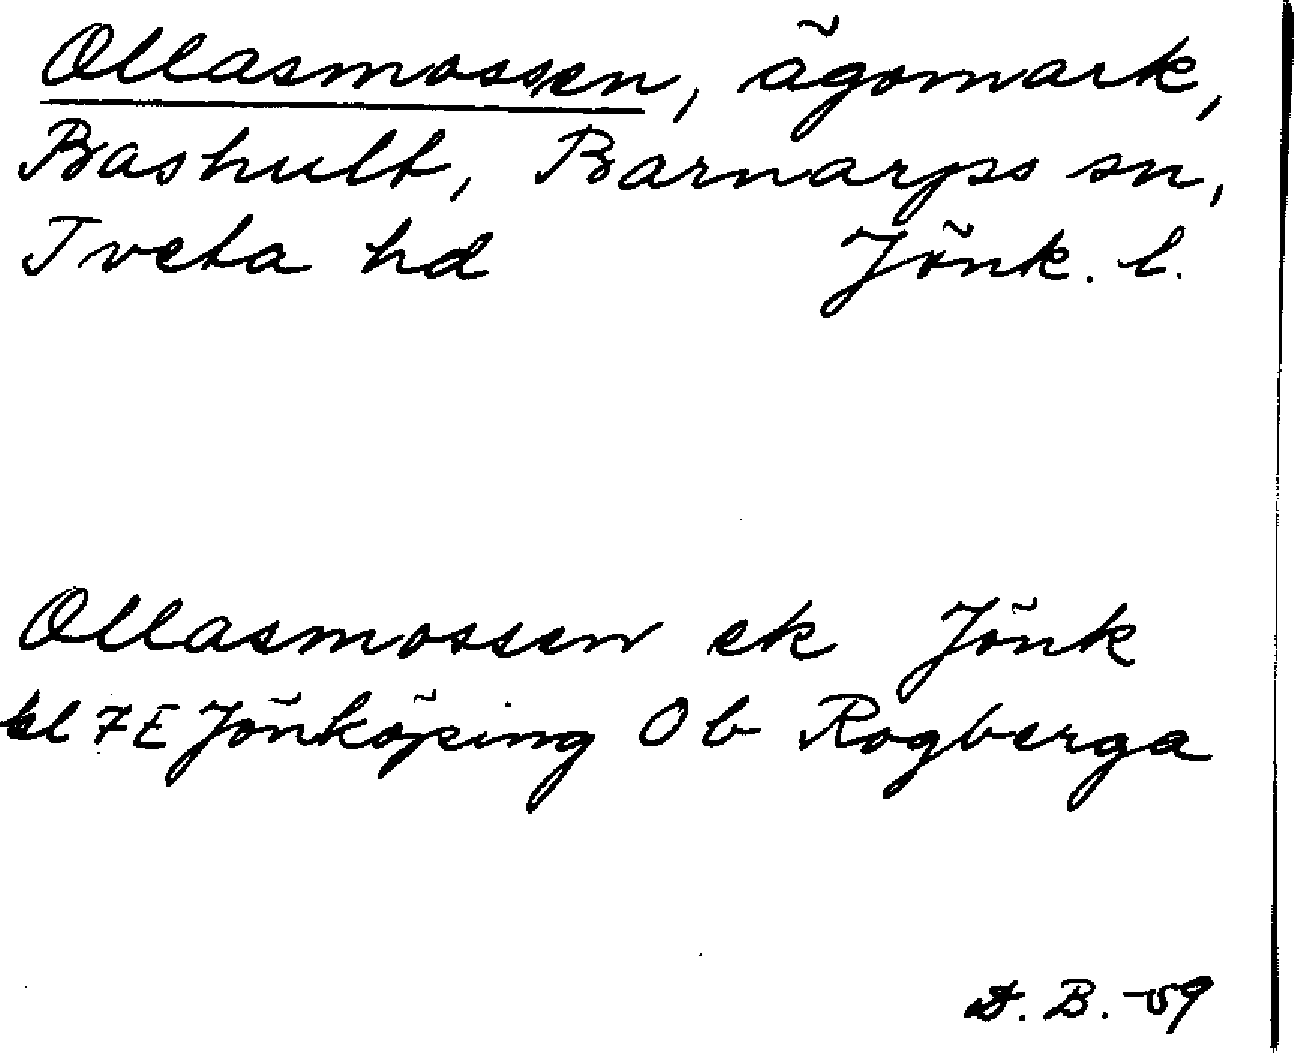 Ollasmossen, ägomark,
Bashult, Barnarps sn,
Tveta hd Jönk. l.
Ollasmossen ek Jönk
bl 7E Jönköping Ob Rogberga
D. B. -59